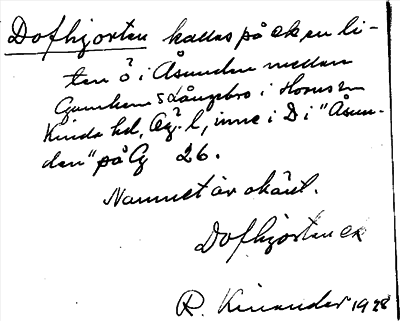 Dofhjorten kallas på ek en li-
ten ö i Åsunden mellan
Långebro i Horns sn
Kinda hd, Ög. l, inne i D i "Åsun-
den" på Cg 26.
Namnet är okänt.
Dofhjorten
R. Kinander 1928